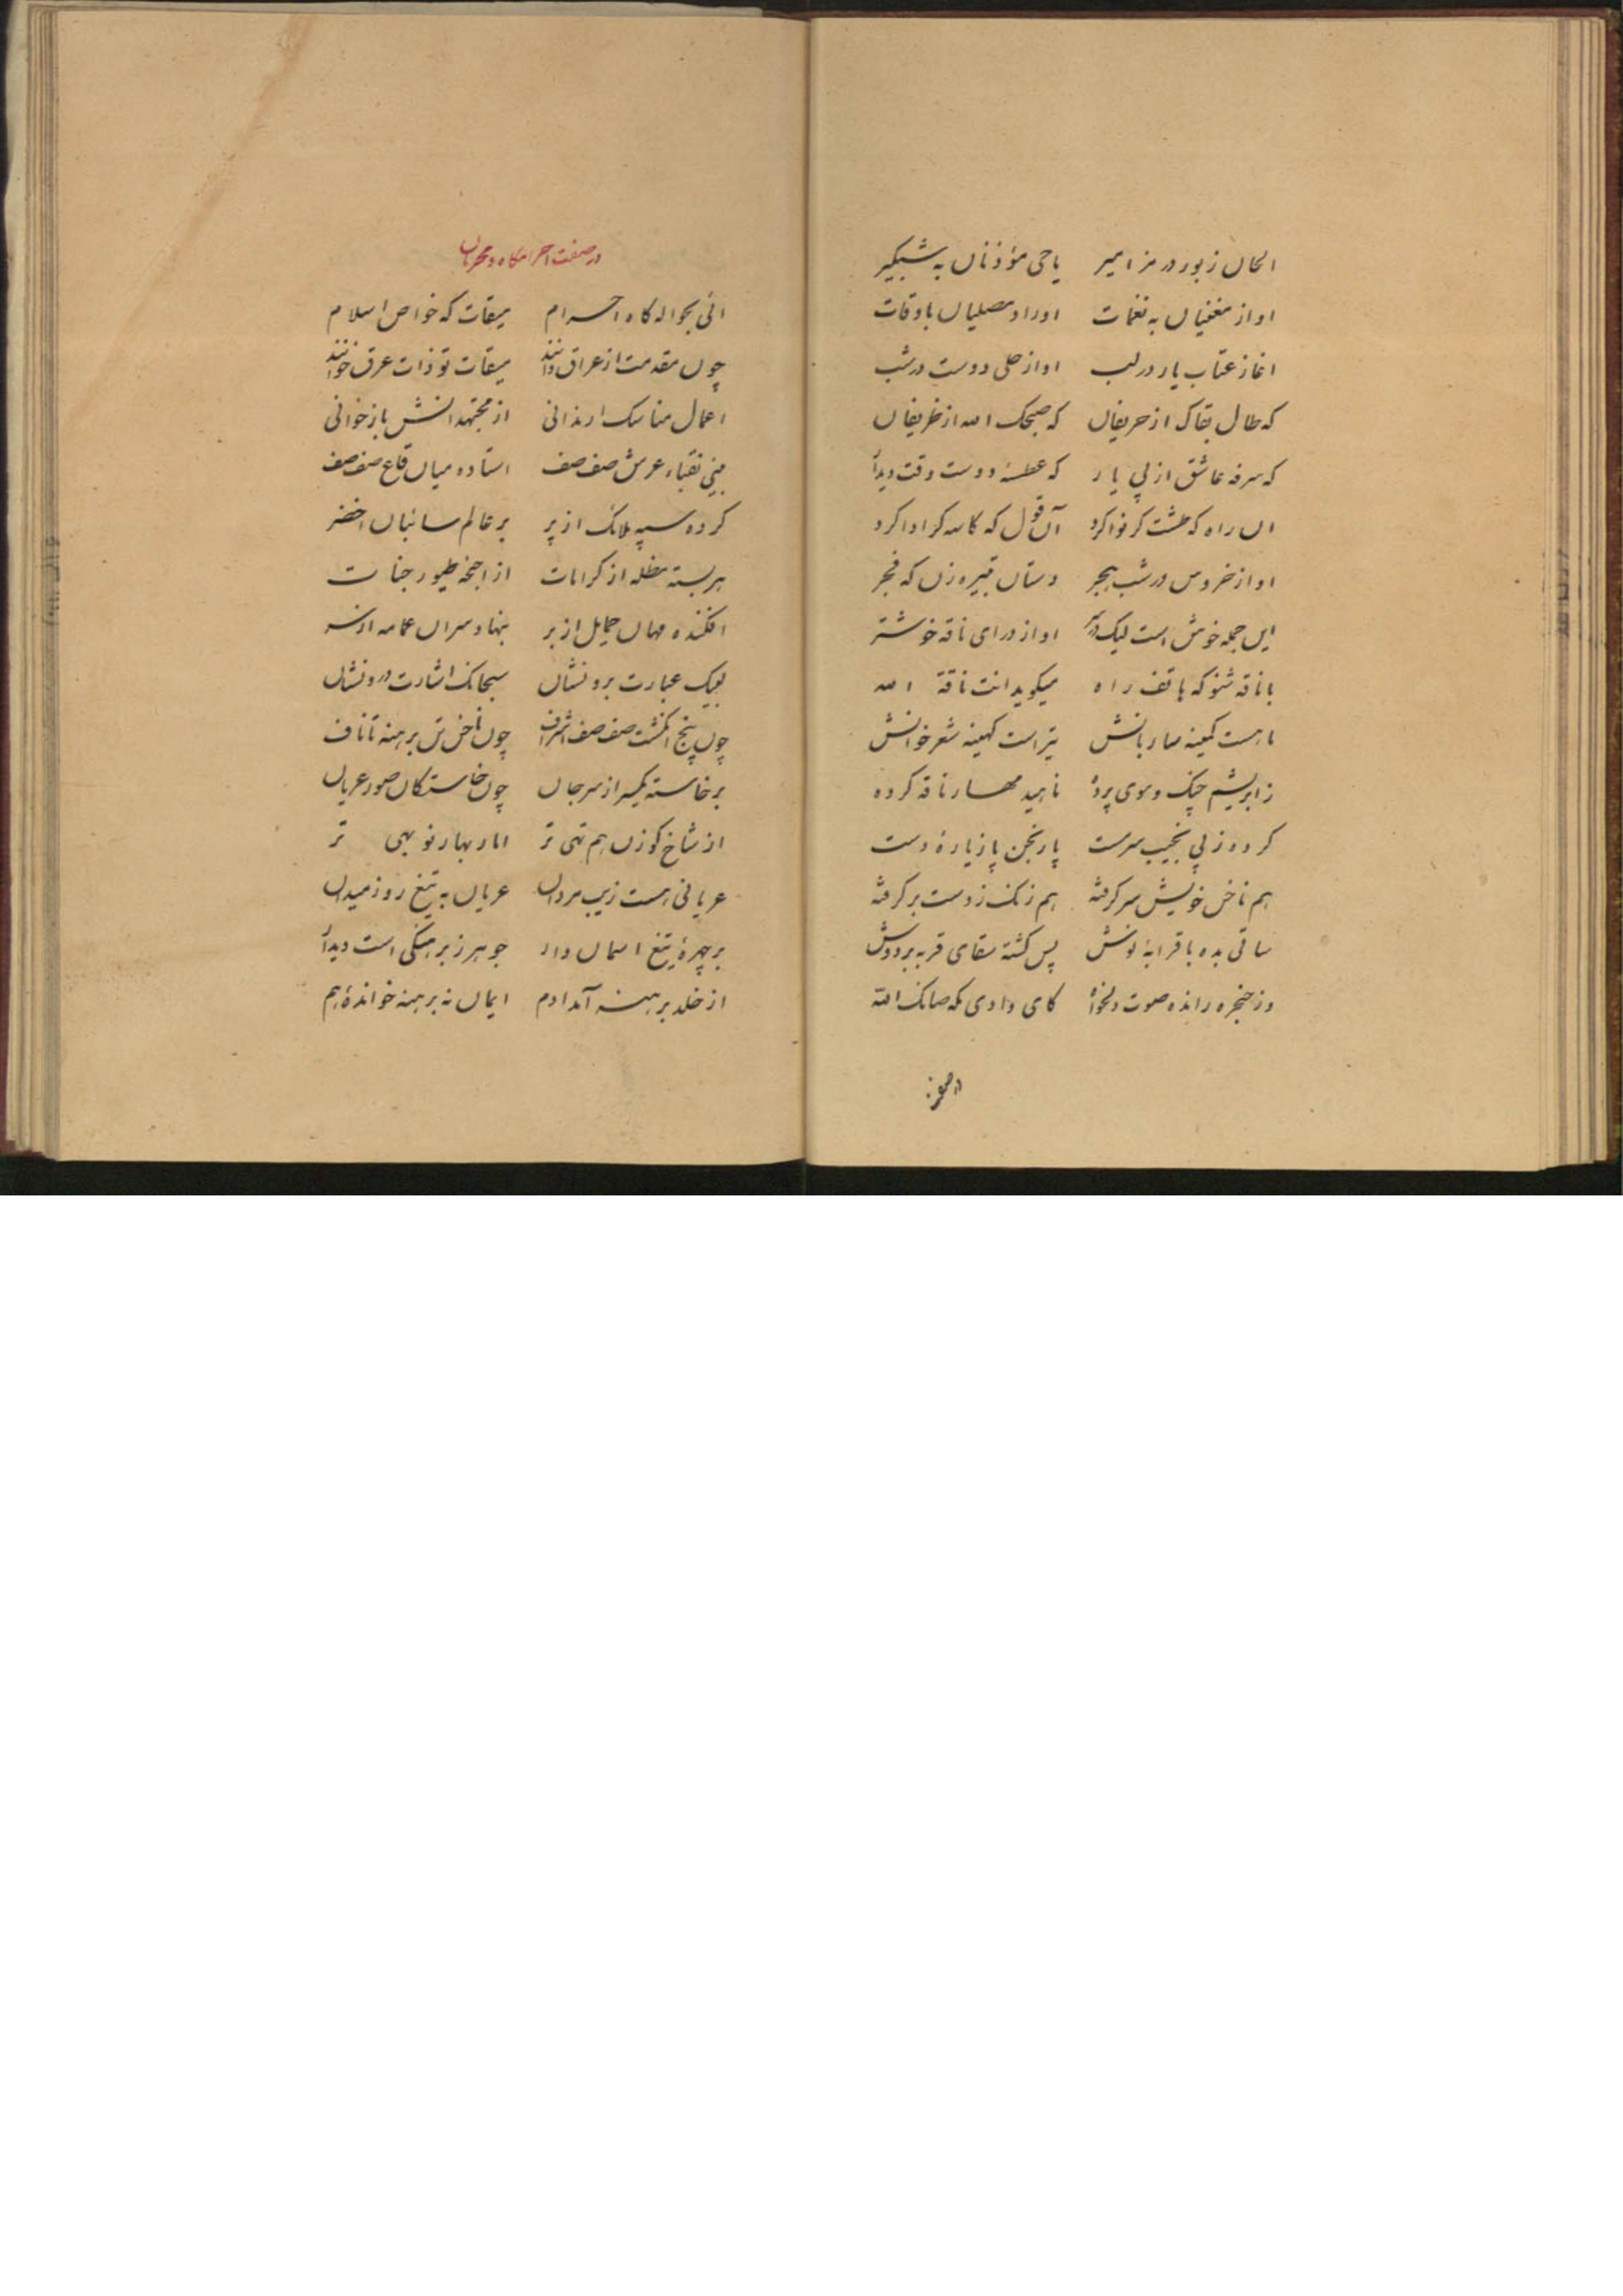 الحان زبور در مزامیر یا حی مؤذنان به شبگیر
اواز مغنیان به نغمات اوراد مصلیان باوقات
اغاز عتاب یار در لب اواز حلی دوست در شب
که طال بقاک از حریفان که صبحک الله از ظریفان
که سرفه عاشق از پی یار که عطسهٔ دوست وقت دیدار
ان راه که طشت گر نوا کرد آن قول که کاسه گر ادا کرد
اواز خروس در شب هجر دستان تبیره زن که فجر
این جمله خوش است لیک در سر اواز درای ناقه خوشتر
با ناقه شنو که هاتف راه میکوید انت ناقة الله
ماهست کمینه ساربانش تیر است کهینه شعر خوانش
ز ابریشم چنک و موی پرده ناهید مهار ناقه کرده
کرده ز پی نجیب سرمست پارنجن پا ز یارهٔ دست
هم ناخن خویش سر کرفته هم زنک ز دست بر کرفته
ساقی بده با قرابهٔ نوش پس کشته سقای قربه بر دوش
وز حنجره رانده صوت دلخواه کای وادی مکه صانک الله
در صفت
در صفت احرامکاه و محرمان
ائی بحواله کاه احرام میقات که خواص اسلام
چون مقدمت از عراق دانند میقات تو ذات عرق خوانند
اعمال مناسک ار ندانی از مجتهدانش باز خوانی
بینی نقباء عرش صف صف استاده میان قاع صفصف
کرده سپه ملائک از پر بر عالم سائبان اخضر
بربسته مظله از کرامات از اجنحهٔ طیور جنات
افکنده مهان حمایل از بر بنهاده سران عمامه از سر
لبیک عبارت برونشان سبحانک اشارت درونشان
چون پنج انکشت صف صف اشراف چون ناخن تن برهنه تا ناف
برخاسته یکسر از سر جان چون خاستکان صور عریان
از شاخ کوزن هم تهی تر اما ز بهار نو بهی تر
عریانی هست زیب مردان عریان به تیغ روز میدان
بر چهرهٔ تیغ اسمان وار جوهر ز برهنکی است دیدار
از خلد برهنه آمد ادم ایمان نه برهنه خواندهٔ هم